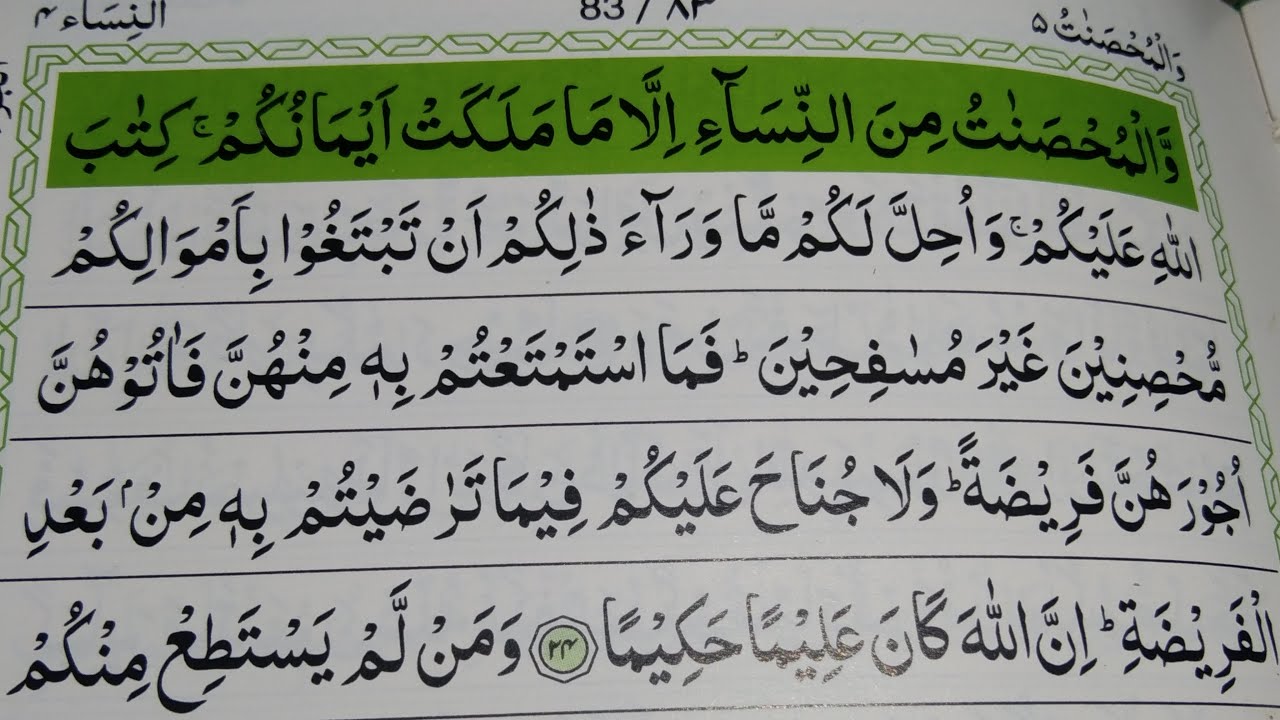 وَالْمُحْصَنٰتُ ۵
83 / ۸۳
النِّسَاء ۴
وَّالْمُحْصَنٰتُ مِنَ النِّسَآءِ اِلَّا مَا مَلَكَتْ اَيْمَانُكُمْ ۚ كِتٰبَ
اللّٰهِ عَلَيْكُمْ ۚ وَاُحِلَّ لَكُمْ مَّا وَرَآءَ ذٰلِكُمْ اَنْ تَبْتَغُوْا بِاَمْوَالِكُمْ
مُّحْصِنِيْنَ غَيْرَ مُسٰفِحِيْنَ ؕ فَمَا اسْتَمْتَعْتُمْ بِهٖ مِنْهُنَّ فَاٰتُوْهُنَّ
اُجُوْرَهُنَّ فَرِيْضَةً ؕ وَلَا جُنَاحَ عَلَيْكُمْ فِيْمَا تَرٰضَيْتُمْ بِهٖ مِنْۢ بَعْدِ
الْفَرِيْضَةِ ؕ اِنَّ اللّٰهَ كَانَ عَلِيْمًا حَكِيْمًا ۲۴ وَمَنْ لَّمْ يَسْتَطِعْ مِنْكُمْ